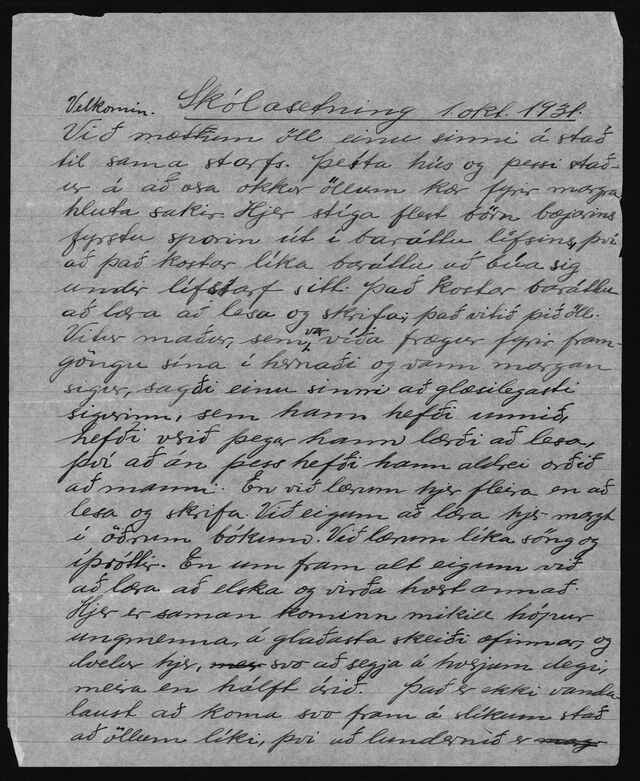 Velkomin. Skólasetning 1. okt. 1931.
Við mætum öll einu sinni á stað
til sama starfs. Þetta hús og þessi stað-
ur á að vera okkur öllum kær fyrir margra
hluta sakir. Hjer stíga flest börn bæjarins
fyrstu sporin út í baráttu lífsins, því
að það kostar líka baráttu að búa sig
undir lífstarf sitt. Það kostar baráttu
að læra að lesa og skrifa, það vitið þið öll.
Vitur maður, sem var víða frægur fyrir fram-
göngu sína í hernaði og vann margan
sigur, sagði einu sinni að glæsilegasti
sigurinn, sem hann hefði unnið,
hefði verið þegar hann lærði að lesa,
því að án þess hefði hann aldrei orðið
að manni. En við lærum hjer fleira en að
lesa og skrifa. Við eigum að læra hjer margt
í öðrum bókum. Við lærum líka söng og
íþróttir. En um fram alt eigum við
að læra að elska og virða hvert annað.
Hjer er saman kominn mikill hópur
ungmenna, á glaðasta skeiði æfinnar, og
dvelur hjer, svo að segja á hverjum degi,
meira en hálft árið. Það er ekki vanda-
laust að koma svo fram á slíkum stað
að öllum líki, því að lundernið er